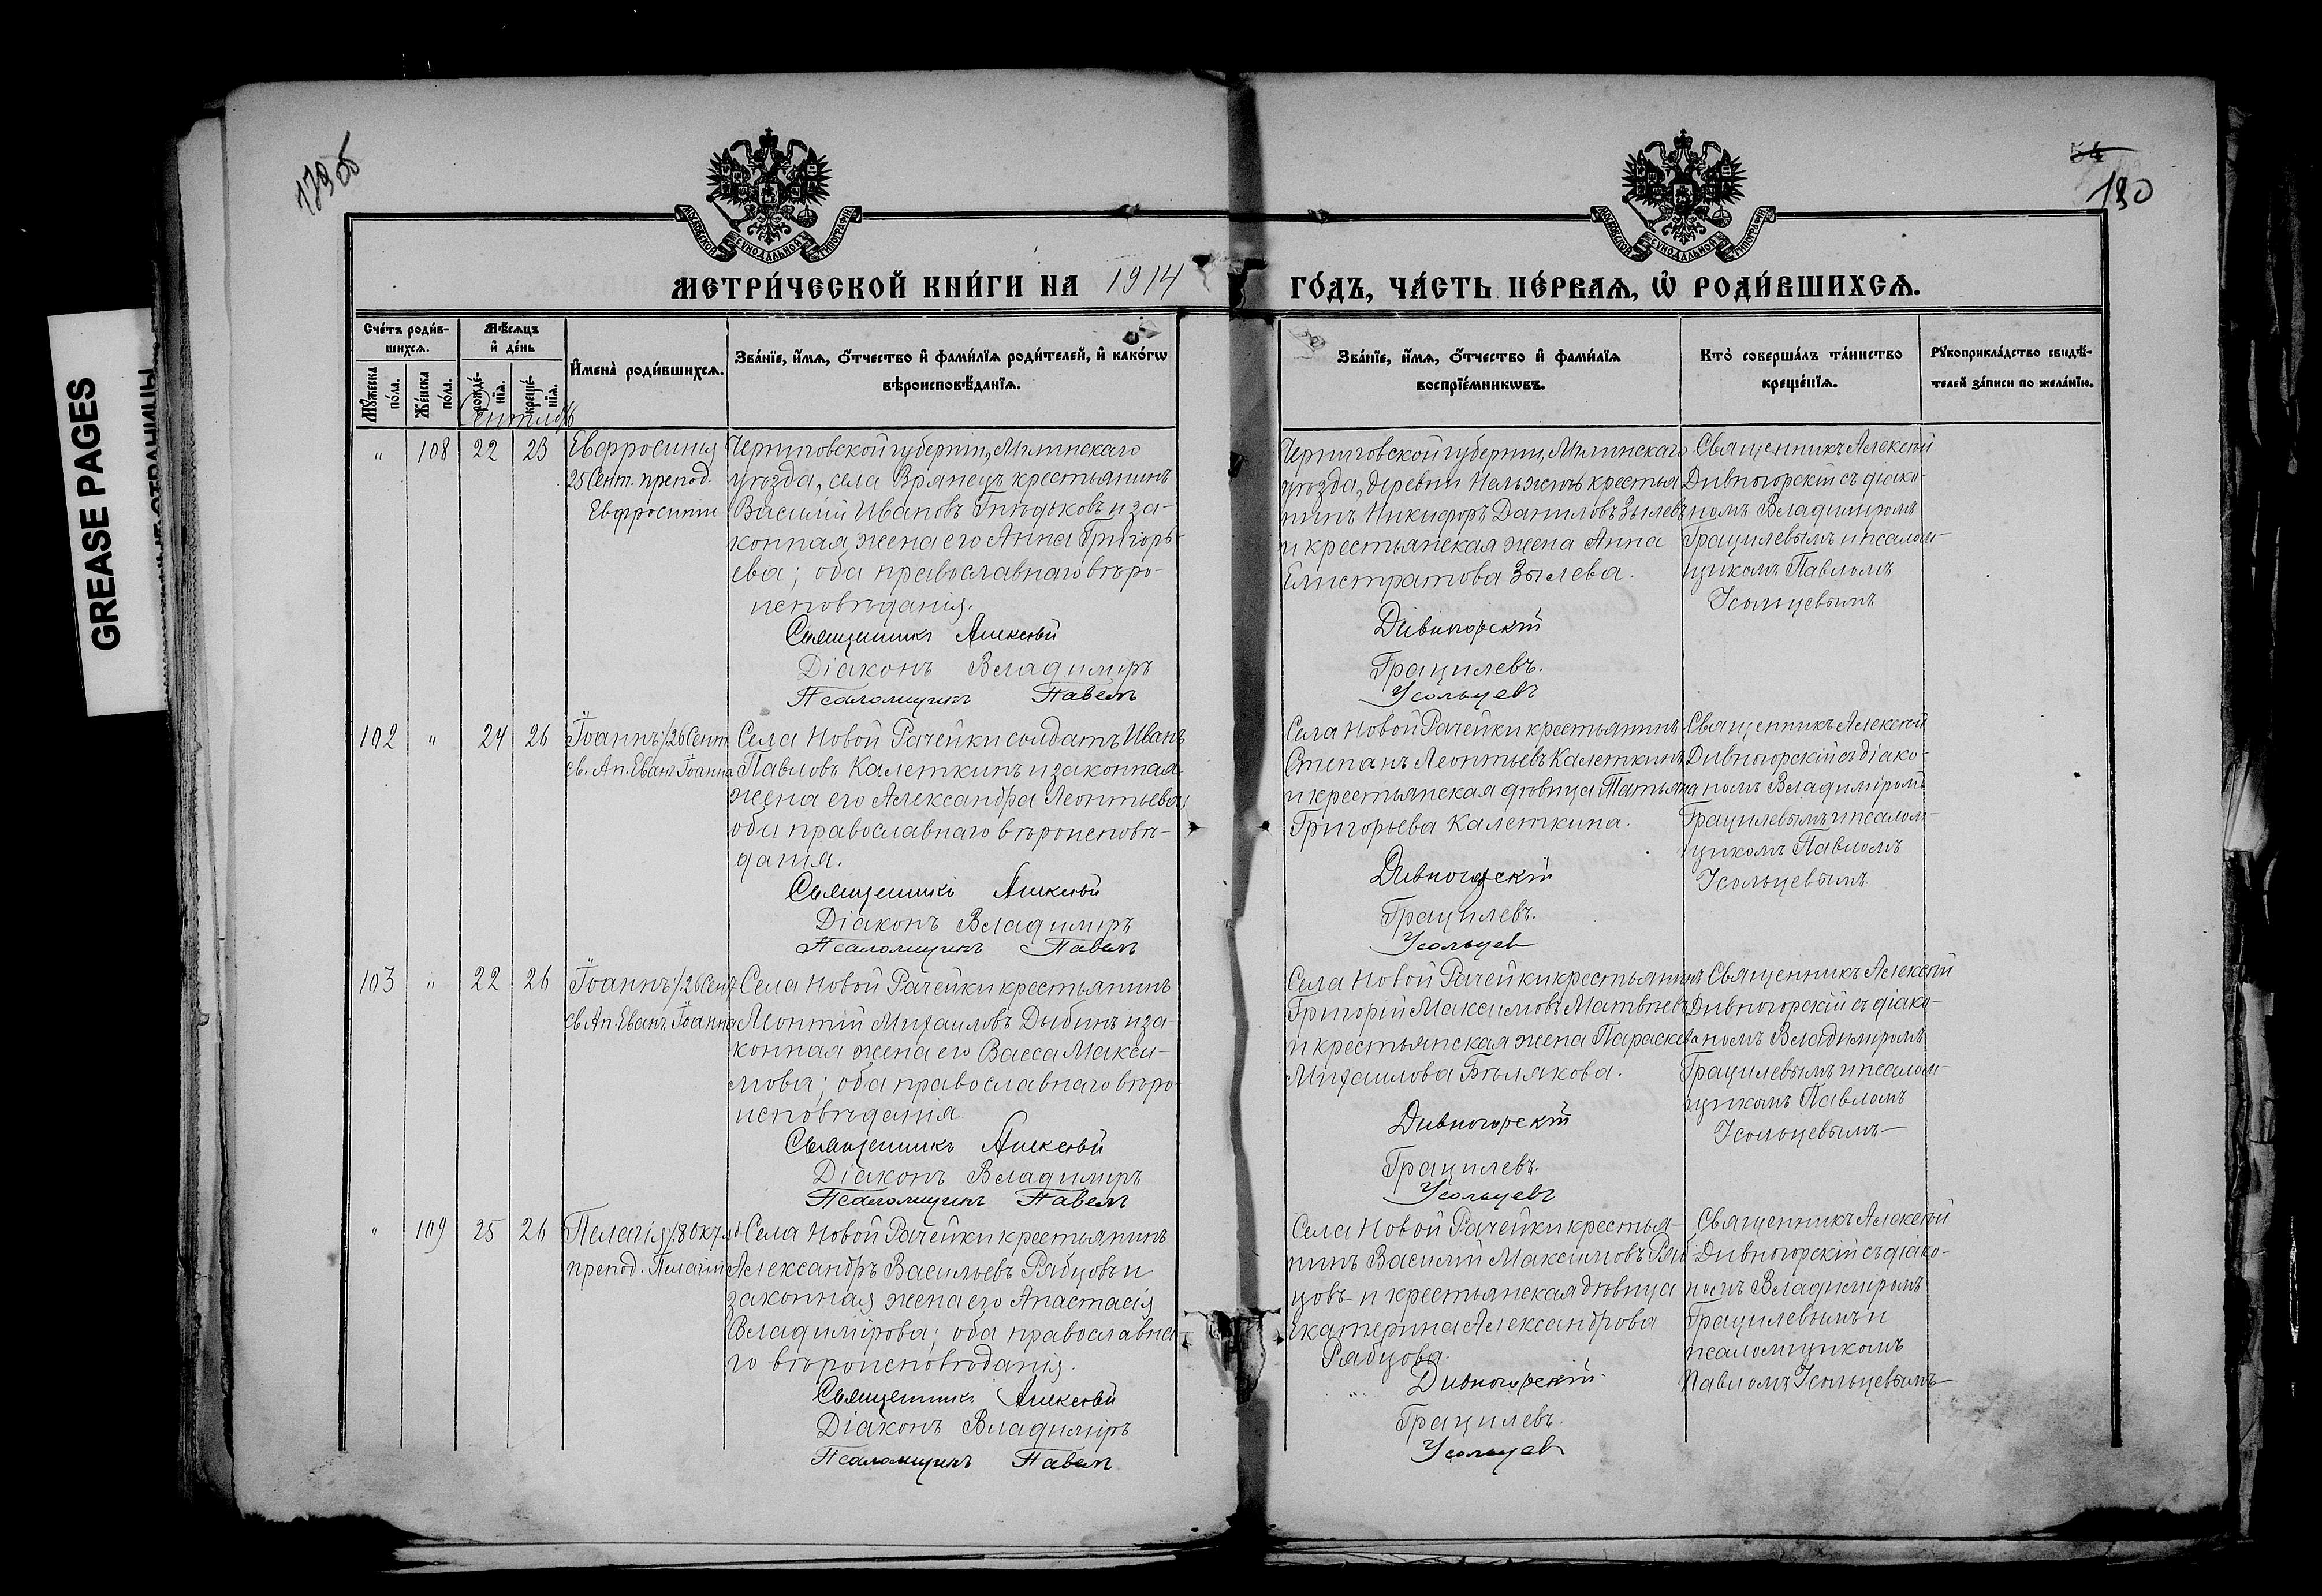 179 об
54
180
GREASE PAGES
МОСКОВСКОЙ СѴНОДАЛЬНОЙ ТИПОГРАФІИ
МОСКОВСКОЙ СѴНОДАЛЬНОЙ ТИПОГРАФІИ
МЕТРИ́ЧЕСКОЙ КНИ́ГИ НА 1914 ГО́ДЪ, ЧА́СТЬ ПЕ́РВАЯ, Ѡ҆ РОДИ́ВШИХСѦ.
Сче́тъ роди́в-
шихсѧ.
Мꙋ́жеска
по́ла.
Же́нска
по́ла.
Мѣ́сѧцъ
и҆ де́нь
рожде́-
нїѧ.
креще́-
нїѧ.
Сентябрь
И҆мена̀ роди́вшихсѧ.
Зва́нїе, и҆́мѧ, ѻ҆́тчество и҆ фами́лїѧ роди́телей, и҆ како́гѡ
вѣроисповѣ́данїѧ.
Зва́нїе, и҆́мѧ, ѻ҆́тчество и҆ фами́лїѧ
воспрїе́мникѡвъ.
Кто̀ соверша́лъ та́инство
креще́нїѧ.
Рꙋкоприкла́дство свидѣ́-
телей за́писи по жела́нїю.
" 108 22 23
Евфросинія
25 Сент. препод.
Евфросиніи
Черниговской губерніи, Мглинскаго
уѣзда, села Врянецъ крестьянинъ
Василій Ивановъ Гнѣдьковъ и за-
конная жена его Анна Григорь-
ева; оба православнаго вѣро-
исповѣданія.
Священникъ Алексѣй
Діаконъ Владиміръ
Псаломщикъ Павелъ
Черниговской губерніи, Мглинскаго
уѣзда, деревни Нельжичъ крестья
нинъ Никифоръ Даниловъ Зылевъ
и крестьянская жена Анна
Елистратова Зылева.
Дивногорскій
Грацилевъ.
Усольцевъ
Священникъ Алексѣй
Дивногорскій съ діако-
номъ Владиміромъ
Грацилевымъ и псалом-
щикомъ Павломъ
Усольцевымъ
102 " 24 26
Іоаннъ/26 Сент
св. Ап. Еванг Іоанна
Села Новой Рачейки солдатъ Иванъ
Павловъ Калеткинъ и законная
жена его Александра Леонтьева;
оба православнаго вѣроисповѣ-
данія.
Священникъ Алексѣй
Діаконъ Владиміръ
Псаломщикъ Павелъ
Села Новой Рачейки крестьянинъ
Степанъ Леонтьевъ Калеткинъ
и крестьянская дѣвица Татьяна
Григорьева Калеткина.
Дивногорскій
Грацилевъ.
Усольцев
Священникъ Алексѣй
Дивногорскій съ діако-
номъ Владиміромъ
Грацилевымъ и псалом-
щикомъ Павломъ
Усольцевымъ.
103 " 22 26
Іоаннъ/26 Сент
св. Ап. Еванг Іоанна
Села Новой Рачейки крестьянинъ
Леонтій Михаиловъ Дыбинъ и за-
конная жена его Васса Макси-
мова; оба православнаго вѣро-
исповѣданія
Священникъ Алексѣй
Діаконъ Владиміръ
Псаломщикъ Павелъ
Села Новой Рачейки крестьянинъ
Григорій Максимовъ Матвѣевъ
и крестьянская жена Параскева
Михаилова Бѣлякова.
Дивногорскій
Грацилевъ.
Усольцевъ
Священникъ Алексѣй
Дивногорскій съ діако-
номъ Владиміромъ
Грацилевымъ и псалом-
щикомъ Павломъ
Усольцевымъ
" 109 25 26
Пелагія/8 окт.
препод. Пелагіи
Села Новой Рачейки крестьянинъ
Александръ Васильевъ Рябцовъ и
законная жена его Анастасія
Владимірова; оба православна-
го вѣроисповѣданія.
Священникъ Алексѣй
Діаконъ Владиміръ
Псаломщикъ Павелъ
Села Новой Рачейки крестья-
нинъ Василій Максимовъ Ряб
цовъ и крестьянская дѣвица
Екатерина Александрова
Рябцова.
Дивногорскій.
Грацилевъ.
Усольцев
Священникъ Алексѣй
Дивногорскій съ діако-
номъ Владиміромъ
Грацилевымъ и
псаломщикомъ
Павломъ Усольцевымъ